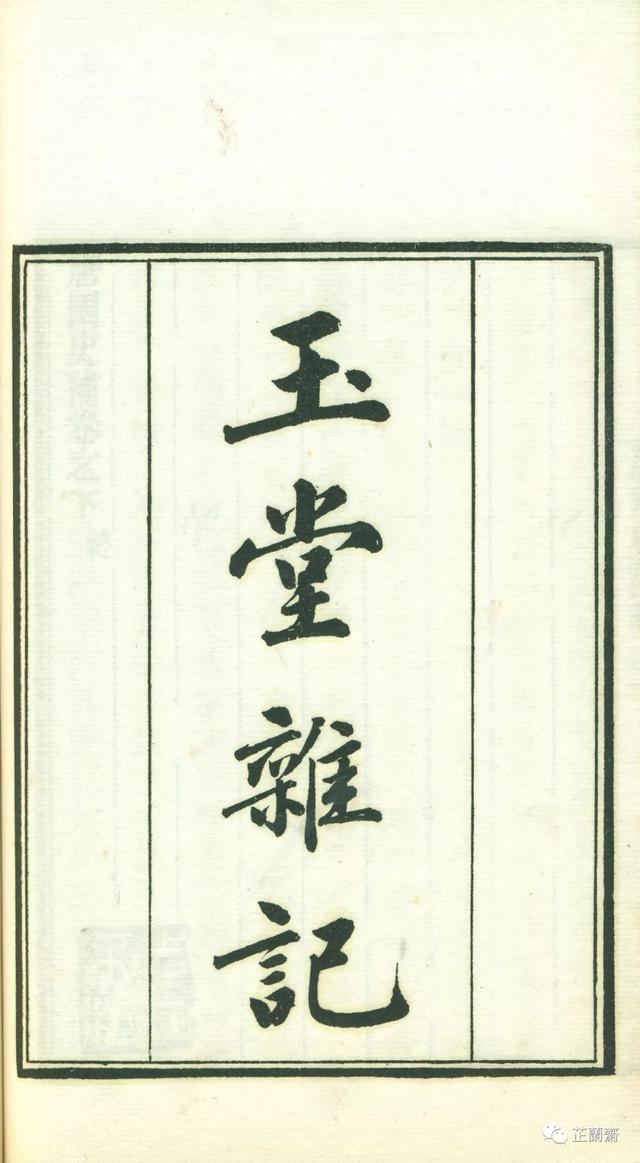 玉堂雜記
芷蘭齋